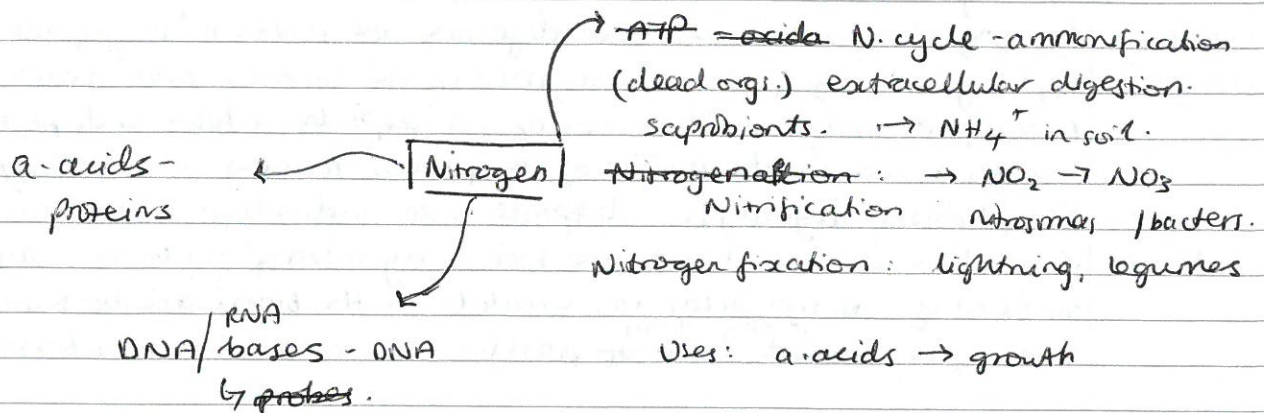 ATP = oxida N. cycle - ammonification
(dead orgs.) extracellular digestion.
saprobionts. → NH4+ in soil.
a-acids -
proteins
Nitrogen
Nitrogenation : → NO2 → NO3
Nitrification nitrosomas / bacters.
Nitrogen fixation : lightning, legumes
RNA
DNA/ bases - DNA
↳ probes.
Uses: a.acids → growth